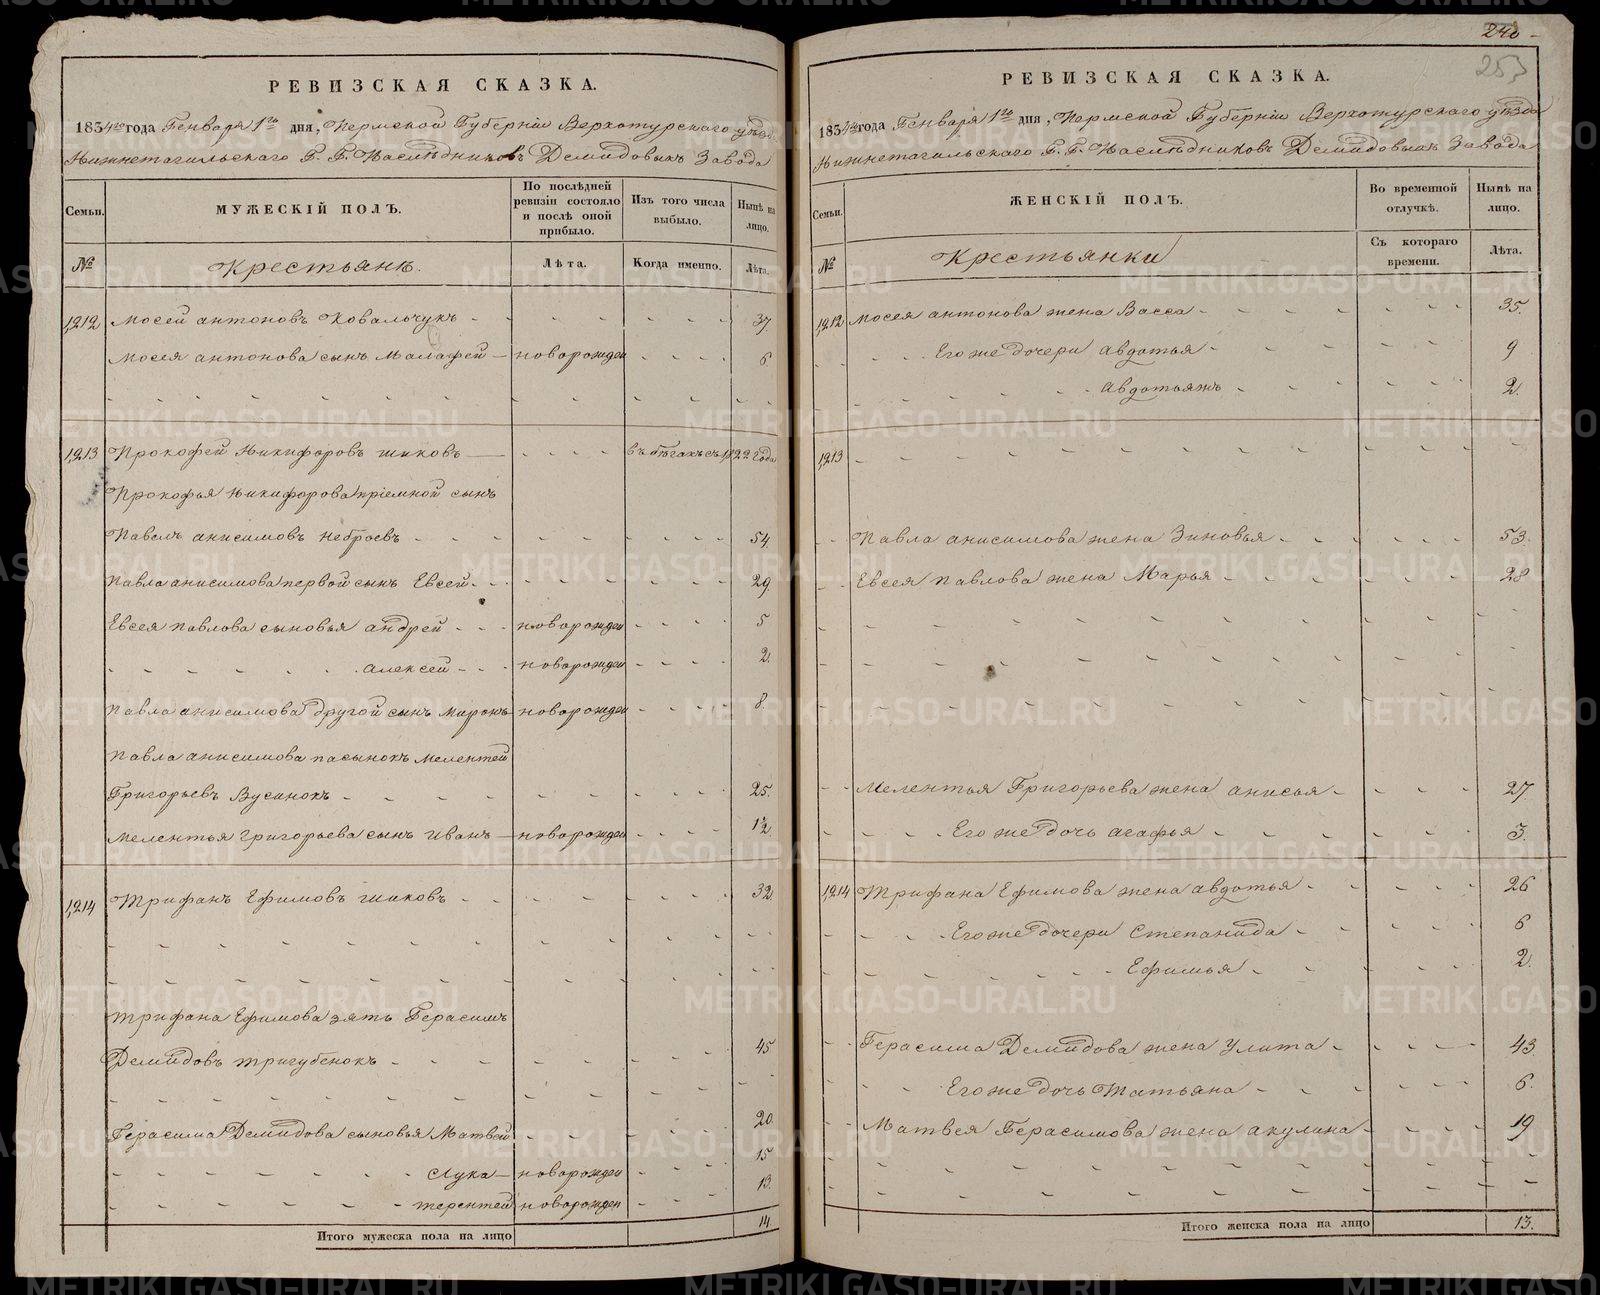 РЕВИЗСКАЯ СКАЗКА.
1834го года Генваря 1го дня, Пермской Губерніи Верхотурскаго уѣзда
Нижнетагильскаго Г. Г. Наслѣдниковъ Демидовыхъ Завода
Семьи.
МУЖЕСКІЙ ПОЛЪ.
По послѣдней ревизіи состояло и послѣ оной прибыло.
Изъ того числа выбыло.
Нынѣ на лицо.
№
Крестьянѣ.
Лѣта.
Когда именно.
Лѣта.
1,212 Мосей антоновъ Ковальчукъ 37.
Мосея антонова сынъ Малафей новорожден 6
1,213 Прокофей Никифоровъ шиковъ въ бѣгахъ съ 1822 года
Прокофья Никифорова пріемной сынъ
Павелъ анисимовъ Неброевъ 54.
Павла анисимова первой сынъ Евсей 29.
Евсея Павлова сыновья андрей новорожден 5
алексей новорожден 2.
Павла анисимова другой сынъ Миронъ новорожден 8.
Павла анисимова пасынокъ Мелентей
Григорьевъ Вусинокъ 25.
Мелентья Григорьева сынъ Иванъ новорожден 1/2
1,214 Трифанъ Ефимовъ шиковъ 32.
Трифана Ефимова зять Герасимъ
Демидовъ тригубенокъ 45
Герасима Демидова сыновья Матвей 20.
Лука новорожден 15
терентей новорожден 13.
Итого мужеска пола на лицо 14
240
253
РЕВИЗСКАЯ СКАЗКА.
1834го года Генваря 1го дня, Пермской Губерніи Верхотурскаго уѣзда
Нижнетагильскаго Г. Г. Наслѣдниковъ Демидовыхъ Завода
Семьи.
ЖЕНСКІЙ ПОЛЪ.
Во временной отлучкѣ.
Нынѣ на лицо.
№
Крестьянки
Съ котораго времени.
Лѣта.
1,212 Мосея антонова жена Васса 35.
Его же дочери авдотья 9
авдотьяжъ 2.
1,213
Павла анисимова жена Зиновья 53.
Евсея Павлова жена Марья 28
Мелентья Григорьева жена анисья 27
Его же дочь агафья 3.
1,214 Трифана Ефимова жена авдотья 26
Его же дочери Степанида 6
Ефимья 2.
Герасима Демидова жена Улита 43.
Его же дочь Татьяна 6.
Матвея Герасимова жена акулина 19
Итого женска пола на лицо 13.
METRIKI.GASO-URAL.RU